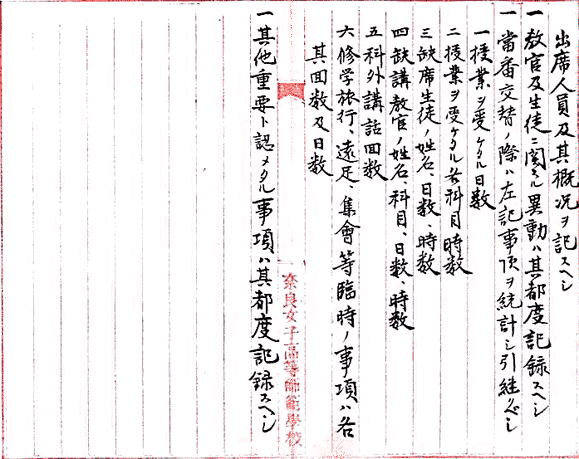 出席人員及其概況ヲ記スヘシ
一教官及生徒ニ関スル異動ハ其都度記録スヘシ
一當番交替ノ際ハ左記事項ヲ統計シ引継クヘシ
一授業ヲ受ケタル日数
二授業ヲ受ケタル各科目時数
三缺席生徒ノ姓名、日数、時数
四缺講教官ノ姓名、科目、日数、時数
五科外講話回数
六修学旅行、遠足、集會等臨時ノ事項ハ各
其回数及日数
奈良女子高等師範學校
一其他重要ト認メタル事項ハ其都度記録スヘシ